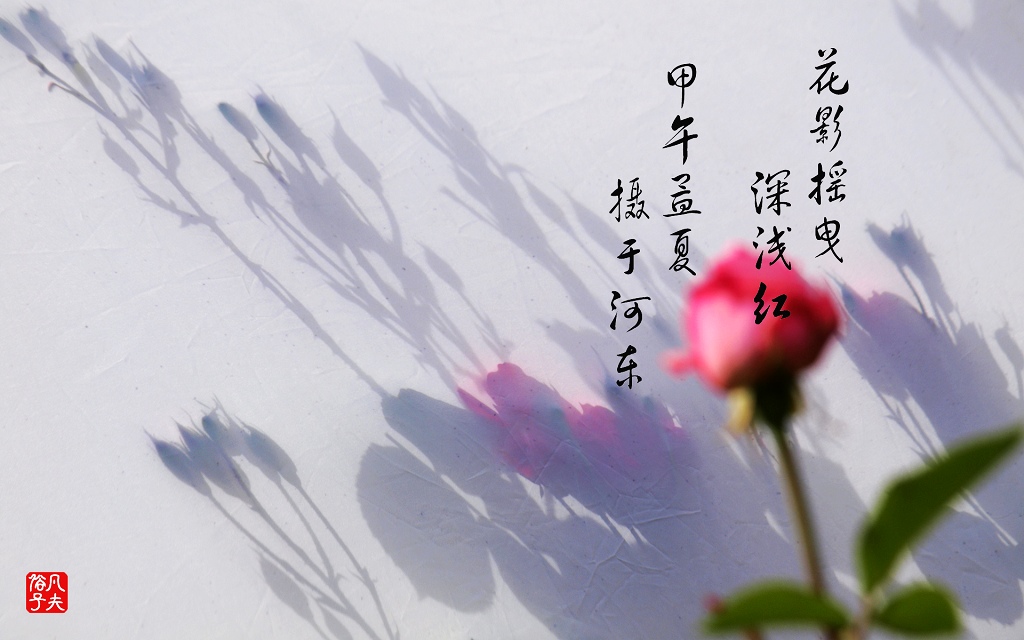 花影摇曳
深浅红
甲午孟夏
摄于河东
凡夫
俗子